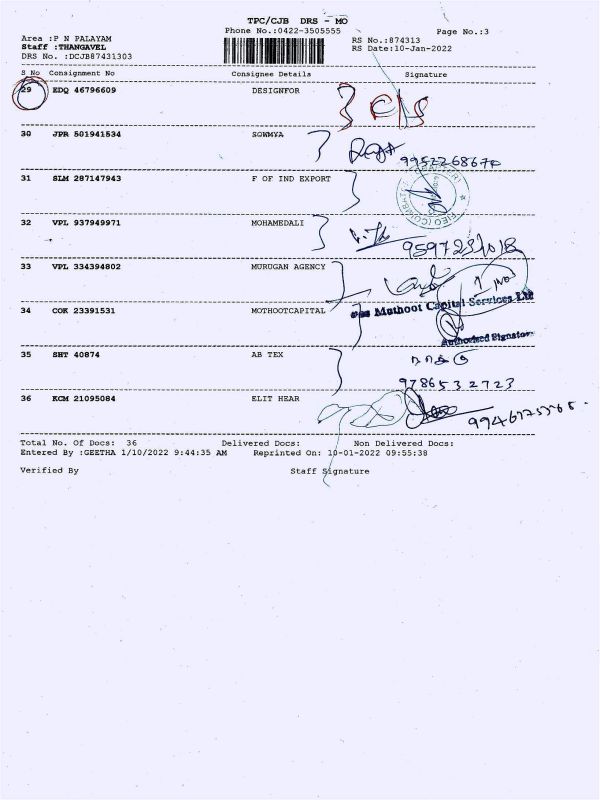 TPC/CJB DRS - MO
Phone No.:0422-3505555 Page No.:3
Area :P N PALAYAM RS No.:874313
Staff :THANGAVEL RS Date:10-Jan-2022
DRS No. :DCJB87431303
S No Consignment No Consignee Details Signature
29 EDQ 46796609 DESIGNFOR
30 JPR 501941534 SOWMYA
31 SLM 287147943 F OF IND EXPORT
32 VPL 937949971 MOHAMEDALI
33 VPL 334394802 MURUGAN AGENCY
34 COK 23391531 MOTHOOTCAPITAL
Muthoot Capital Services Ltd
Authorised Signatory
35 SHT 40874 AB TEX
9786532723
36 KCM 21095084 ELIT HEAR
Total No. Of Docs: 36 Delivered Docs: Non Delivered Docs:
Entered By :GEETHA 1/10/2022 9:44:35 AM Reprinted On: 10-01-2022 09:55:38
Verified By Staff Signature